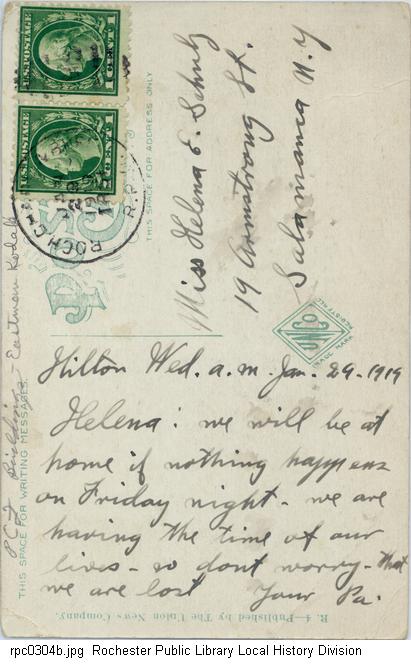 U.S. POSTAGE
1 CENT 1
U.S. POSTAGE
1 CENT 1
ROCH.
JAN
29
1919
R.P.O.
POST
THIS SPACE FOR ADDRESS ONLY
Miss Helena E. Schulz
19 Armstrong St.
Salamanca N.Y
UNCO
REGISTERED
TRADE MARK
THIS SPACE FOR WRITING MESSAGES.
Building - Eastman Kodak
Hilton Wed. a.m. Jan. 29. 1919
Helena: we will be at
home if nothing happens
on Friday night - we are
having the time of our
lives - so dont worry - that
we are lost Your Pa.
R. 4—Published by The Union News Company.
rpc0304b.jpg Rochester Public Library Local History Division